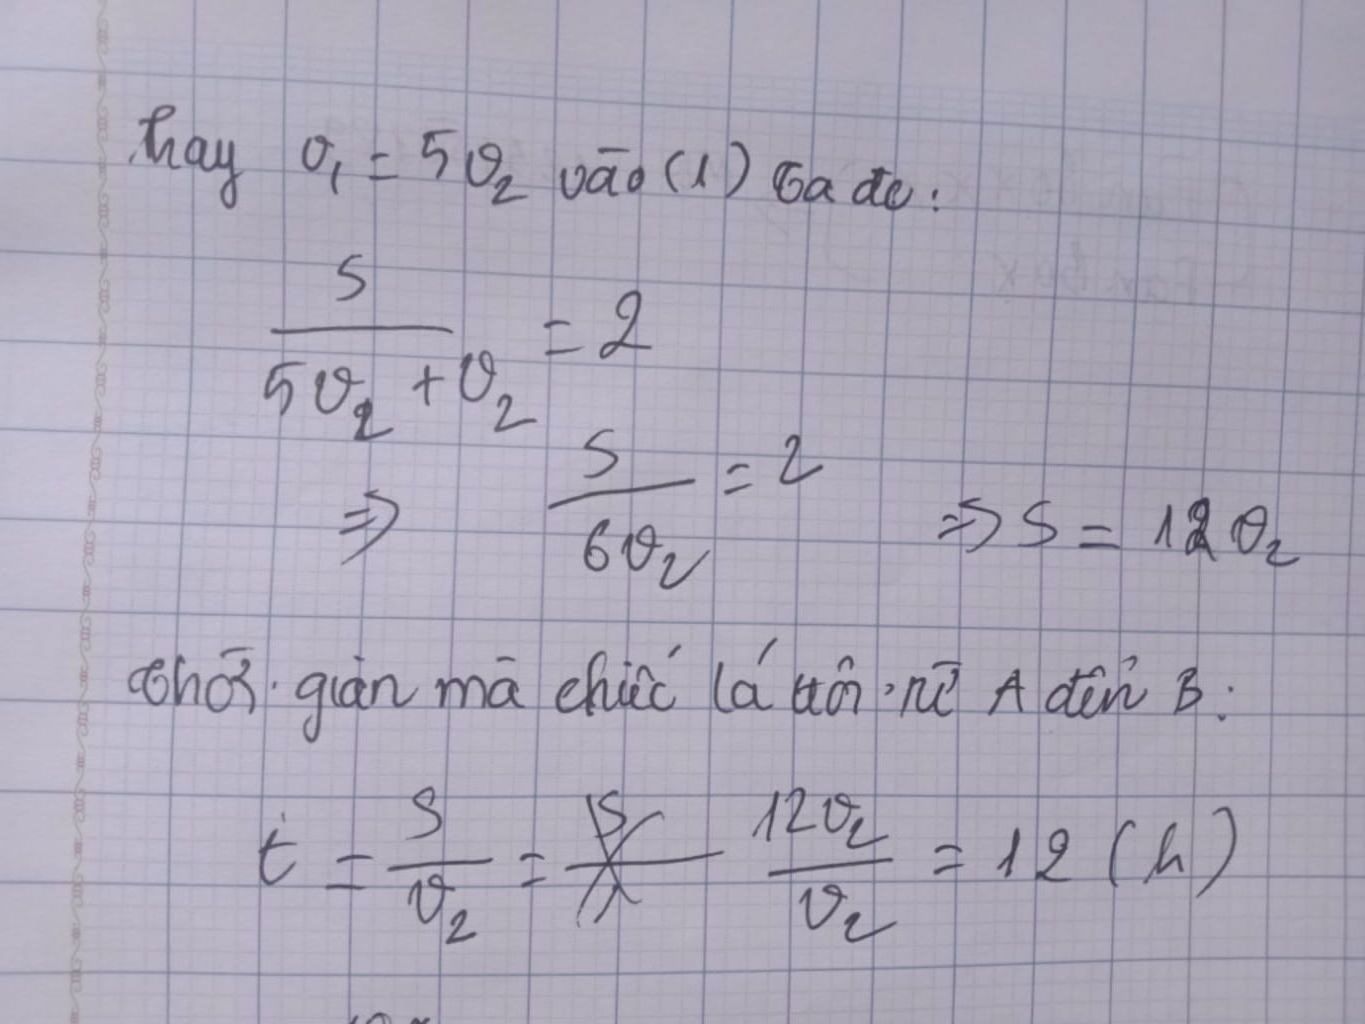 Thay v₁ = 5v₂ vào (1) ta đc:
S / (5v₂ + v₂) = 2
⇒ S / 6v₂ = 2 ⇒ S = 12v₂
Thời gian mà chiếc lá trôi từ A đến B:
t = S / v₂ = 12v₂ / v₂ = 12 (h)